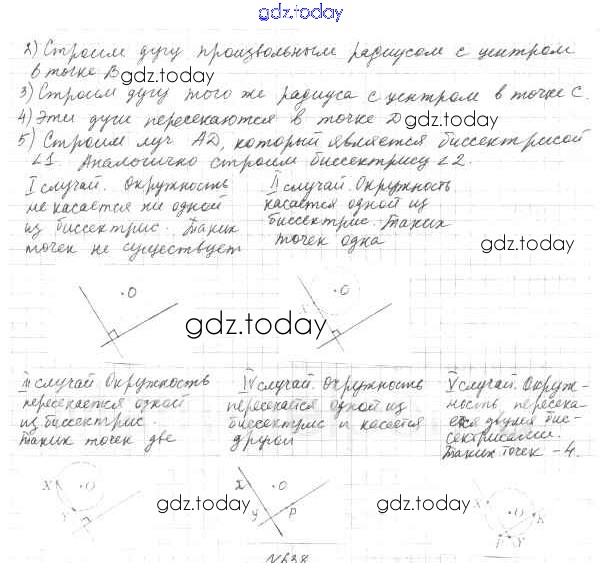 gdz.today
2) Строим дугу произвольным радиусом с центром
в точке B
gdz.today
3) Строим дугу того же радиуса с центром в точке C.
4) Эти дуги пересекаются в точке D
gdz.today
5) Строим луч AD, который является биссектрисой
∠1. Аналогично строим биссектрису ∠2.
I случай. Окружность
не касается ни одной
из биссектрис. Таких
точек не существует
II случай. Окружность
касается одной из
биссектрис. Таких
точек одна
gdz.today
O
O
gdz.today
III случай. Окружность
пересекается одной
из биссектрис.
Таких точек две
IV случай. Окружность
пересекается одной из
биссектрис и касается
другой
V случай. Окруж-
ность пересека-
ется двумя бис-
сектрисами.
Таких точек - 4.
X
O
Y
X
O
Y
P
X
O
K
P
gdz.today
gdz.today
gdz.today
№638